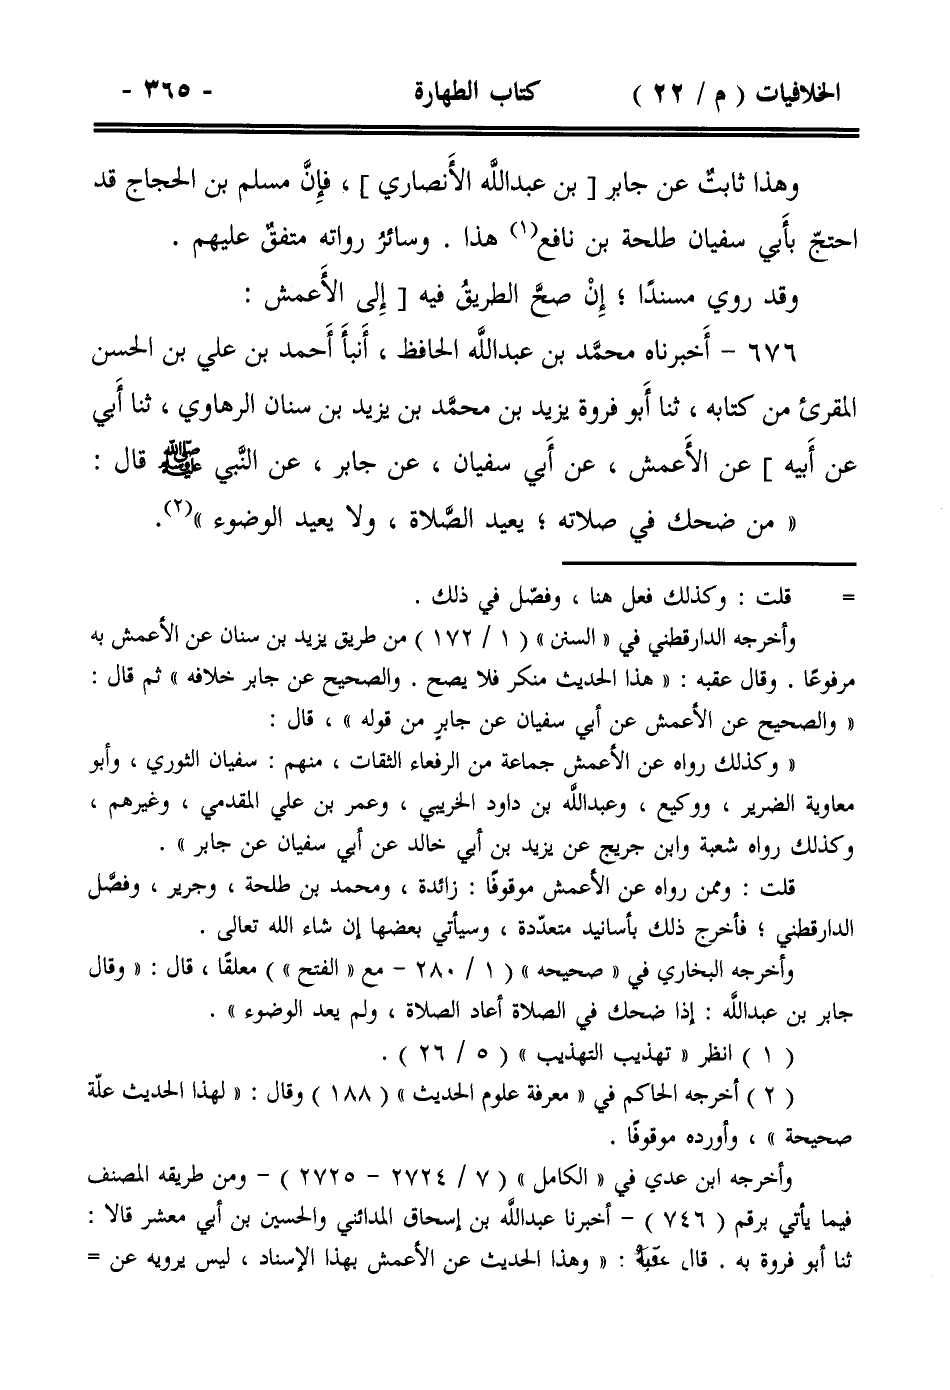 الخلافيات ( م / ٢٢ ) كتاب الطهارة - ٣٦٥ -
وهذا ثابتٌ عن جابر [ بن عبدالله الأَنصاري ] ، فإِنَّ مسلم بن الحجاج قد
احتجّ بأَبي سفيان طلحة بن نافع(١) هذا . وسائرُ رواته متفقٌ عليهم .
وقد روي مسندًا ؛ إِنْ صحَّ الطريقُ فيه [ إِلى الأَعمش :
٦٧٦ - أَخبرناه محمَّد بن عبدالله الحافظ ، أَنبأَ أَحمد بن علي بن الحسن
المقرئ من كتابه ، ثنا أَبو فروة يزيد بن محمَّد بن يزيد بن سنان الرهاوي ، ثنا أَبي
عن أَبيه ] عن الأَعمش ، عن أَبي سفيان ، عن جابر ، عن النَّبي ﷺ قال :
« من ضحك في صلاته ؛ يعيد الصَّلاة ، ولا يعيد الوضوء »(٢).
= قلت : وكذلك فعل هنا ، وفصّل في ذلك .
وأخرجه الدارقطني في « السنن » ( ١ / ١٧٢ ) من طريق يزيد بن سنان عن الأعمش به
مرفوعًا . وقال عقبه : « هذا الحديث منكر فلا يصح . والصحيح عن جابر خلافه » ثم قال :
« والصحيح عن الأعمش عن أبي سفيان عن جابرٍ من قوله » ، قال :
« وكذلك رواه عن الأعمش جماعة من الرفعاء الثقات ، منهم : سفيان الثوري ، وأبو
معاوية الضرير ، ووكيع ، وعبدالله بن داود الخريبي ، وعمر بن علي المقدمي ، وغيرهم ،
وكذلك رواه شعبة وابن جريج عن يزيد بن أبي خالد عن أبي سفيان عن جابر » .
قلت : وممن رواه عن الأعمش موقوفًا : زائدة ، ومحمد بن طلحة ، وجرير ، وفصَّل
الدارقطني ؛ فأخرج ذلك بأسانيد متعدّدة ، وسيأتي بعضها إن شاء الله تعالى .
وأخرجه البخاري في « صحيحه » ( ١ / ٢٨٠ - مع « الفتح » ) معلقًا ، قال : « وقال
جابر بن عبدالله : إذا ضحك في الصلاة أعاد الصلاة ، ولم يعد الوضوء » .
( ١ ) انظر « تهذيب التهذيب » ( ٥ / ٢٦ ) .
( ٢ ) أخرجه الحاكم في « معرفة علوم الحديث » ( ١٨٨ ) وقال : « لهذا الحديث علّة
صحيحة » ، وأورده موقوفًا .
وأخرجه ابن عدي في « الكامل » ( ٧ / ٢٧٢٤ - ٢٧٢٥ ) - ومن طريقه المصنف
فيما يأتي برقم ( ٧٤٦ ) - أخبرنا عبدالله بن إسحاق المدائني والحسين بن أبي معشر قالا :
ثنا أبو فروة به . قال عقبهُ : « وهذا الحديث عن الأعمش بهذا الإسناد ، ليس يرويه عن =